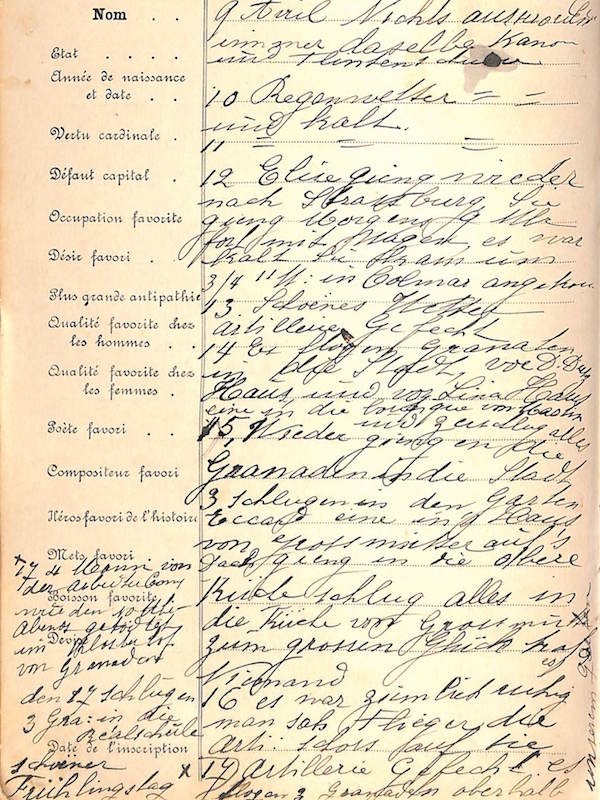 Nom . .
Etat . . . .
Année de naissance
et date . .
Vertu cardinale .
Défaut capital .
Occupation favorite
Désir favori . .
Plus grande antipathie
Qualité favorite chez
les hommes . .
Qualité favorite chez
les femmes .
Poète favori . .
Compositeur favori
Héros favori de l'histoire
Mets favori
Boisson favorite
Devise
Date de l'inscription
9 Avril Nichts
immer daselbe Kanon
und
10 Regenwetter = =
und kalt.
11 = = =
12 Elise gieng wieder
nach Strassburg, Sie
gieng Morgens 9 Uhr
fort mit Wagen es war
kalt Sie kam um
3/4 11 U: in Colmar
13 Schönes Wetter
artillerie Gefecht
14 Es flogen Granaten
in die Stadt, vor D.
Haus und vor Lina Haus
eine in die von
und zerschlug alles
15, Wieder giengen die
Granaden in die Stadt
3 schlugen in den Garten
Eccard eine in's Haus
von aufs
Dach gieng in die obere
Küche schlug alles in
die Küche von
zum grossen Glück
Niemand
16 es war zimlich ruhig
man sah Flieger die
arti: schos auf sie
x 17 artillerie Gefecht es
flogen 2 Granaden oberhalb
x 17 4 Mann von
der
Abent
im
von Granaden
den 17 schlugen
3 Gra: in die
Realschule
schöner
Frühlingstag
unserem